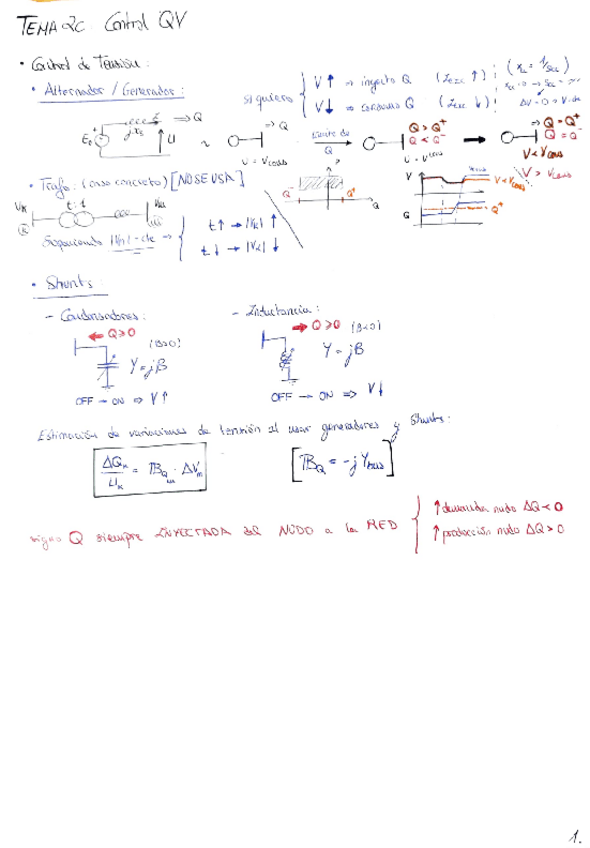 TEMA 2C Control QV
• Control de Tensión:
• Alternador / Generador:
si quiero
V↑ ⇒ inyecto Q (Iexc ↑)
V↓ ⇒ consumo Q (Iexc ↓)
ΔV = 0
⇒ Q
E₀
jXs
U
⇒ Q
U = Vcons
Límite de Q
Q > Q⁺
Q < Q⁻
U = Vcons
⇒ Q = Q⁺
Q = Q⁻
V < Vcons
V > Vcons
Q⁻
Q⁺
Q
V
V < Vcons
Q
Q⁺
• Trafo: (caso concreto) [NO SE USA]
t : 1
Suponiendo
t↑ → |Vk| ↑
t↓ → |Vk| ↓
• Shunts:
- Condensadores:
Q>0
(B>0)
Y = jB
OFF → ON ⇒ V↑
- Inductancia:
Q>0 (B<0)
Y = jB
OFF → ON ⇒ V↓
Estimación de variaciones de tensión al usar generadores y shunts:
ΔQk / Uk = BQkm · ΔVm
[BQ = -j Ybus]
signo Q siempre INYECTADA del NUDO a la RED
↑ demanda nudo ΔQ < 0
↑ producción nudo ΔQ > 0
1.